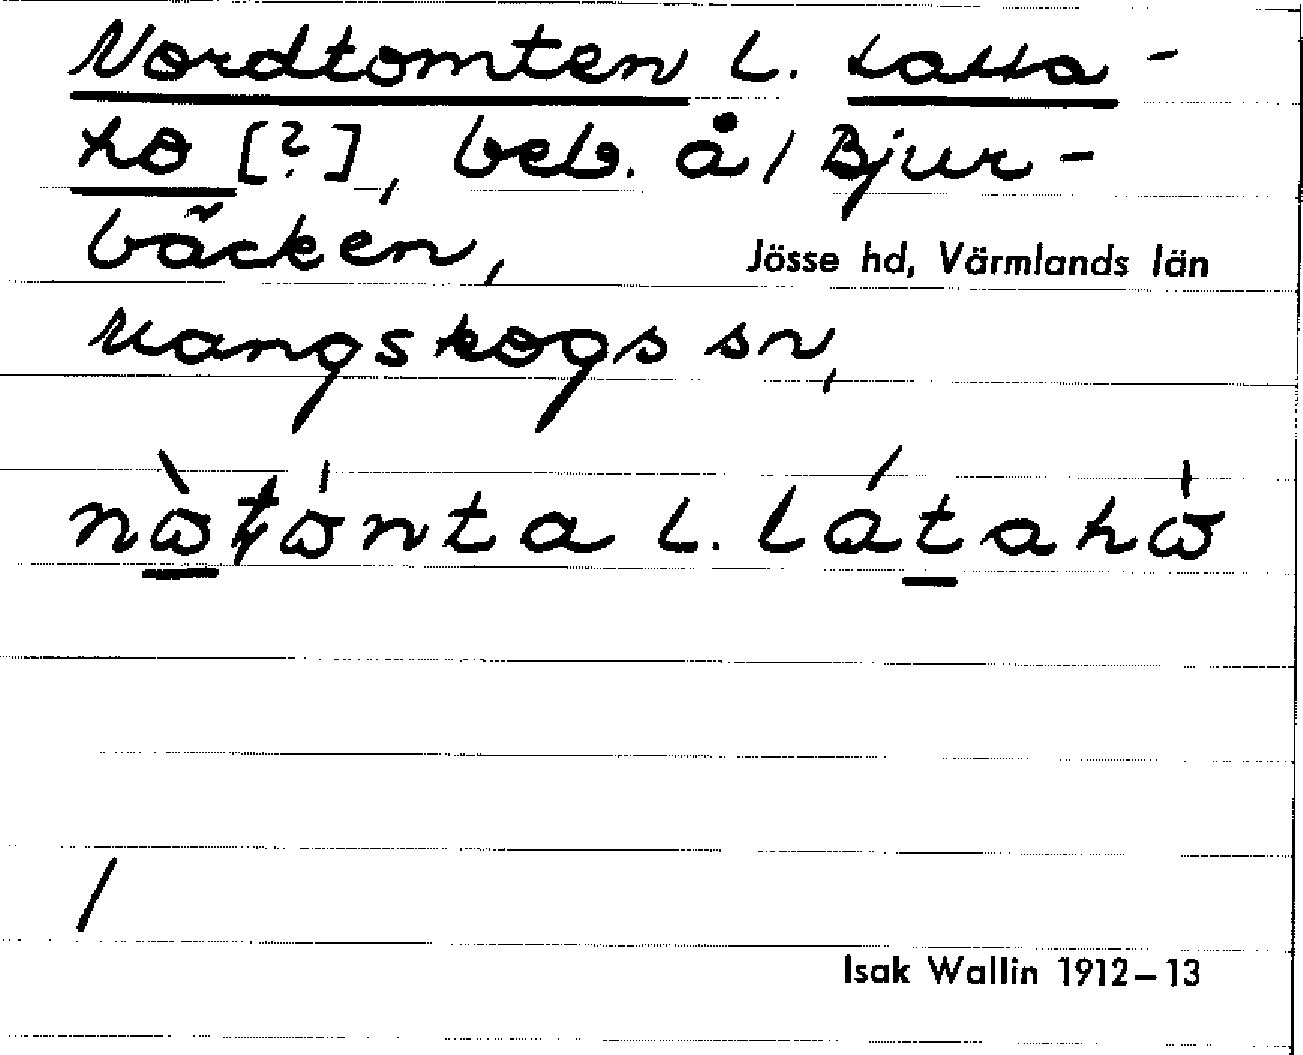 Nordtomten l. Latta-
ho [?], beb. å / Bjur-
bäcken,
Jösse hd, Värmlands län
Mangskogs sn,
l. látahὼ
/
Isak Wallin 1912–13